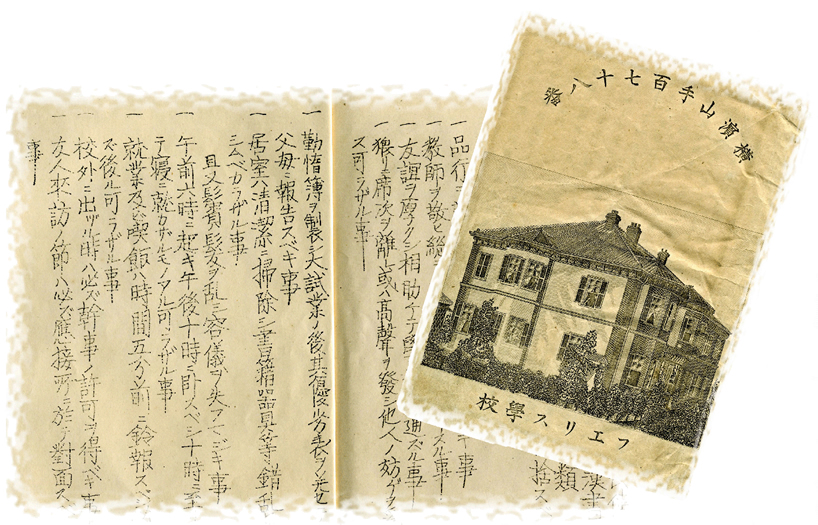 橫濱山手百七十八番
フエリス學校
一 品行
一 教師ヲ敬ヒ總
一 友誼ヲ厚クシ相助ケテ學
猥ニ席次ヲ離レ或ハ高聲ヲ發シ他人ノ妨ゲヲ
ス可ラザル事
一 勤惰簿ヲ製シ大試業ノ後其優劣表ヲ
父母ニ報告スベキ事
一 居室ハ清潔ニ掃除シ書籍器具等錯亂
シムベカラザル事
且又鬚髮ヲ亂シ容儀ヲ失フマジキ事
一 午前六時ニ起キ午後十時ニ臥スベシ十時ニ至
テ寢ニ就カザルモノアル可ラザル事
一 就業及ビ喫飯ハ時間五分前ニ鈴報スベ
ズ後ル可ラザル事
一 校外ニ出ヅル時ハ必ズ幹事ノ許可ヲ得ベキ事
一 友人來訪ノ節ハ必ズ應接所ニ於テ對面ス
事